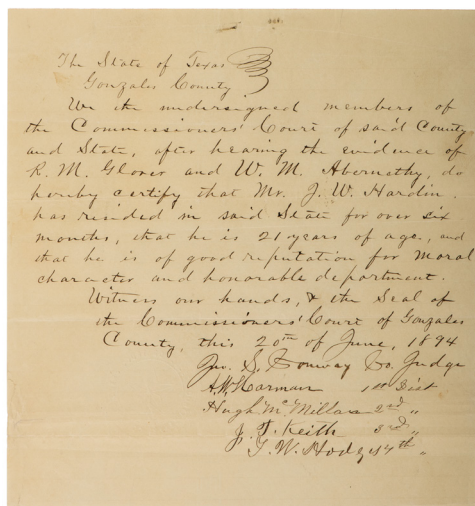 The State of Texas
Gonzales County
We the undersigned members of
the Commissioners' Court of said County
and State, after hearing the evidence of
R. M. Glover and W. M. Abernethy, do
hereby certify that Mr. J. W. Hardin.
has resided in said State for over six
months, that he is 21 years of age, and
that he is of good reputation for moral
character and honorable department.
Witness our hands, & the Seal of
the Commissioners' Court of Gonzales
County, this 20th of June, 1894
Jno. S. Conway Co. Judge
A.W. Harman 1st Dist
Hugh McMillan 2nd "
J. T. Keith 3rd "
T. W. Hodges 4th "